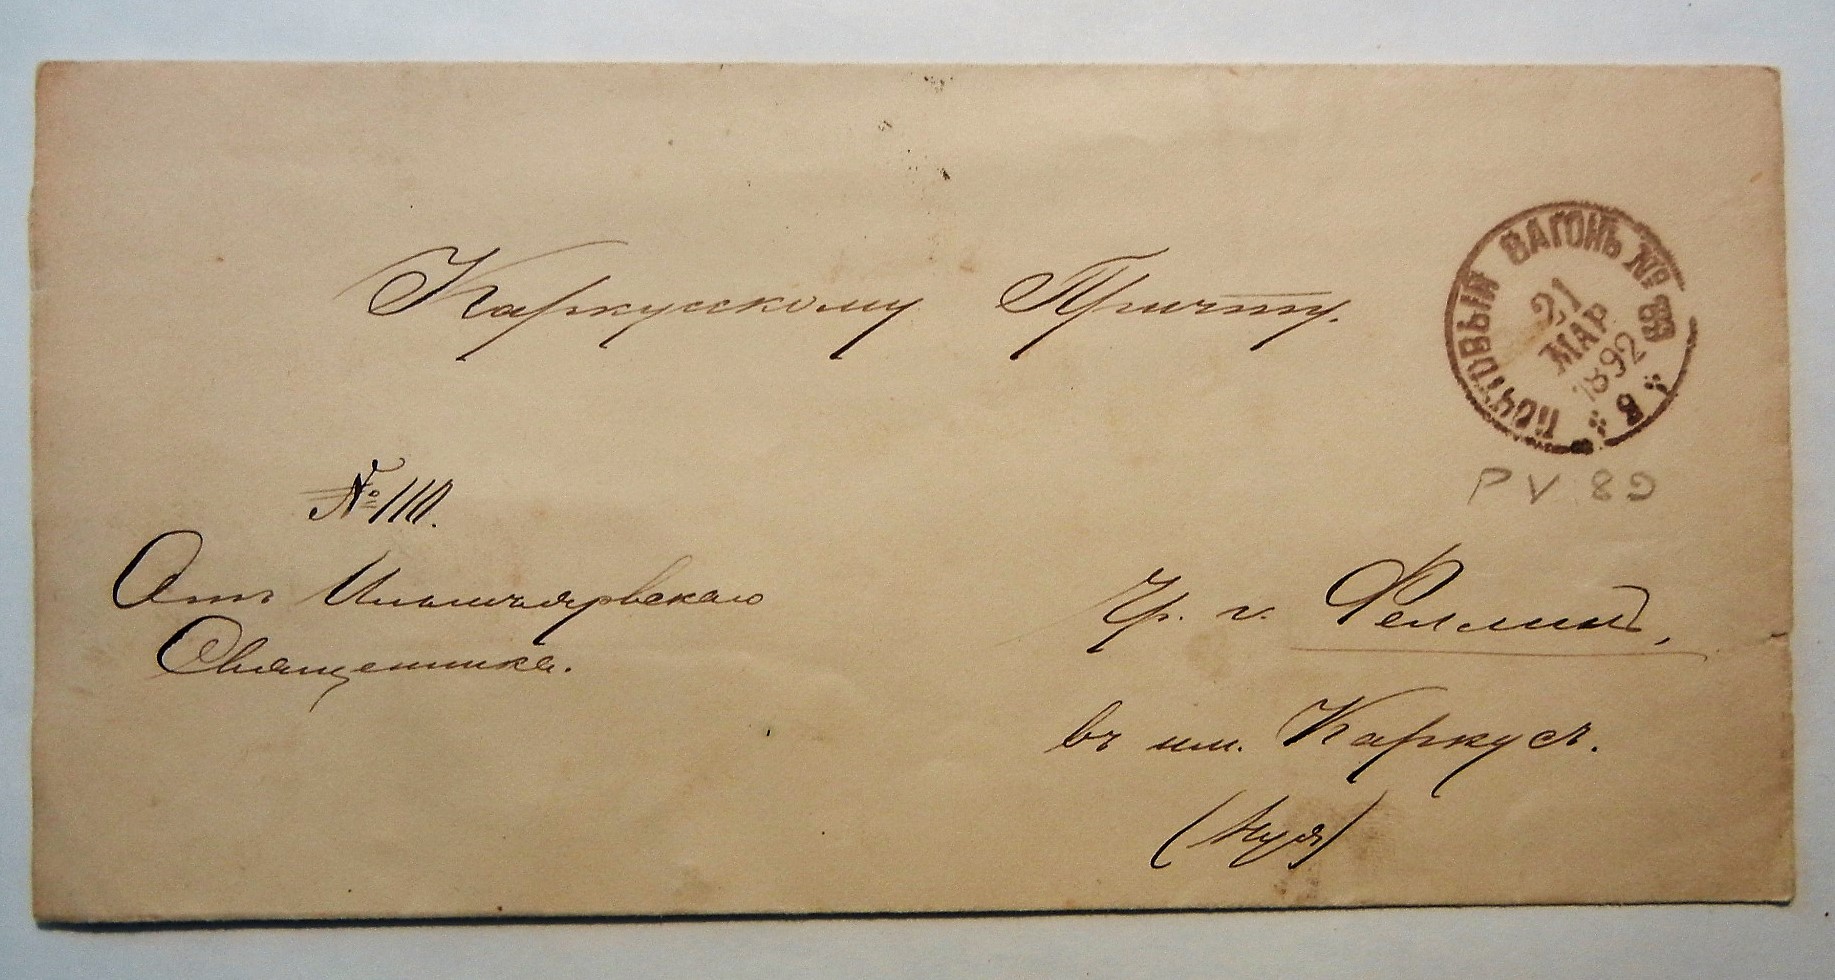 Каркусскому Причту.
ПОЧТОВЫЙ ВАГОНЪ № 89
21
МАР.
1892
8
PV 89
№ 110.
Отъ
Священника.
Чр. г. Феллинъ,
въ им. Каркусъ.
(Нуя)